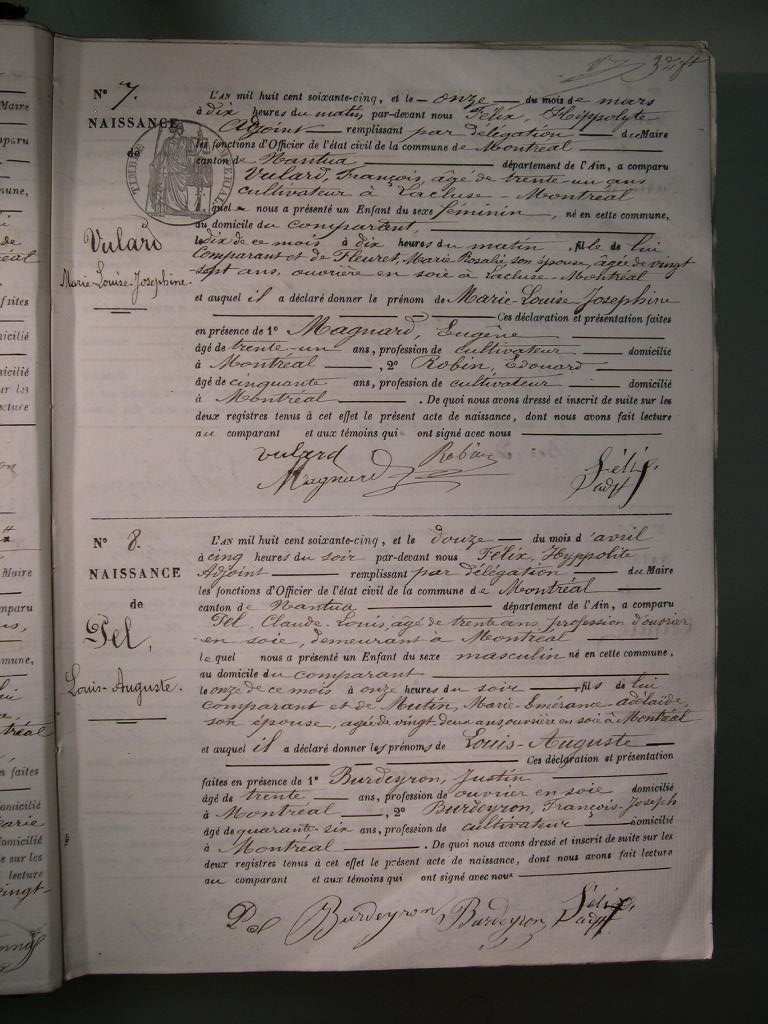 37
N° 7.
NAISSANCE
de
Vulard
Marie-Louise-Josephine.
L'AN mil huit cent soixante-cinq, et le onze du mois de mars
à dix heures du matin, par-devant nous Félix, Hyppolyte
Adjoint remplissant par délégation du Maire
les fonctions d'Officier de l'état civil de la commune de Montréal
canton de Nantua département de l'Ain, a comparu
Vulard, François, âgé de trente-un ans
cultivateur à Lacluse-Montréal
lequel nous a présenté un Enfant du sexe féminin, né en cette commune,
au domicile du comparant,
le dix de ce mois à dix heures du matin, fille de lui
comparant et de Fleuret, Marie-Rosalie, son épouse, agée de vingt
sept ans, ouvrière en soie à Lacluse-Montréal
et auquel il a déclaré donner le prénom de Marie-Louise Josephine
Ces déclaration et présentation faites
en présence de 1° Magnard, Eugène
âgé de trente-un ans, profession de cultivateur domicilié
à Montréal, 2° Robin, Edouard
âgé de cinquante ans, profession de cultivateur domicilié
à Montréal. De quoi nous avons dressé et inscrit de suite sur les
deux registres tenus à cet effet le présent acte de naissance, dont nous avons fait lecture
au comparant et aux témoins qui ont signé avec nous
vulard Robin Félix,
Magnard adjt
N° 8.
NAISSANCE
de
Pel,
Louis-Auguste.
L'AN mil huit cent soixante-cinq, et le douze du mois d'avril
à cinq heures du soir par-devant nous Félix, Hyppolite
Adjoint remplissant par délégation du Maire
les fonctions d'Officier de l'état civil de la commune de Montréal
canton de Nantua département de l'Ain, a comparu
Pel, Claude-Louis, agé de trente ans, profession d'ouvrier
en soie, demeurant à Montréal
lequel nous a présenté un Enfant du sexe masculin né en cette commune,
au domicile du comparant
le onze de ce mois à onze heures du soir fils de lui
comparant et de Mutin, Marie-Emérance-adélaide,
son épouse, agée de vingt deux ans ouvrière en soie à Montréal
et auquel il a déclaré donner les prénoms de Louis-Auguste
Ces déclaration et présentation
faites en présence de 1° Burdeyron, Justin
âgé de trente ans, profession de ouvrier en soie domicilié
à Montréal, 2° Burdeyron, François-Joseph
âgé de quarante-six ans, profession de cultivateur domicilié
à Montréal. De quoi nous avons dressé et inscrit de suite sur les
deux registres tenus à cet effet le présent acte de naissance, dont nous avons fait lecture
au comparant et aux témoins qui ont signé avec nous
Pel Burdeyron Burdeyron Félix,
adjt